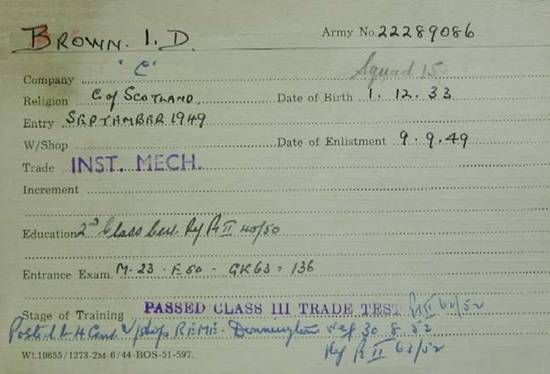 BROWN. I. D. Army No. 22289086
Company "C" Squad 15.
Religion C of SCOTLAND. Date of Birth 1. 12. 33
Entry SEPTAMBER 1949
W/Shop Date of Enlistment 9. 9. 49
Trade INST. MECH.
Increment
Education 2nd Class Cert. Pt II 40/50
Entrance Exam. M-23 - E50 - GK63 = 136
Stage of Training PASSED CLASS III TRADE TEST Pt II 62/52
Posted to 4 Cent W/shops REME. Donnington wef 30 8 52
Wt.19655/1273-2M-6/44-BOS-51-597. Pt II 63/52